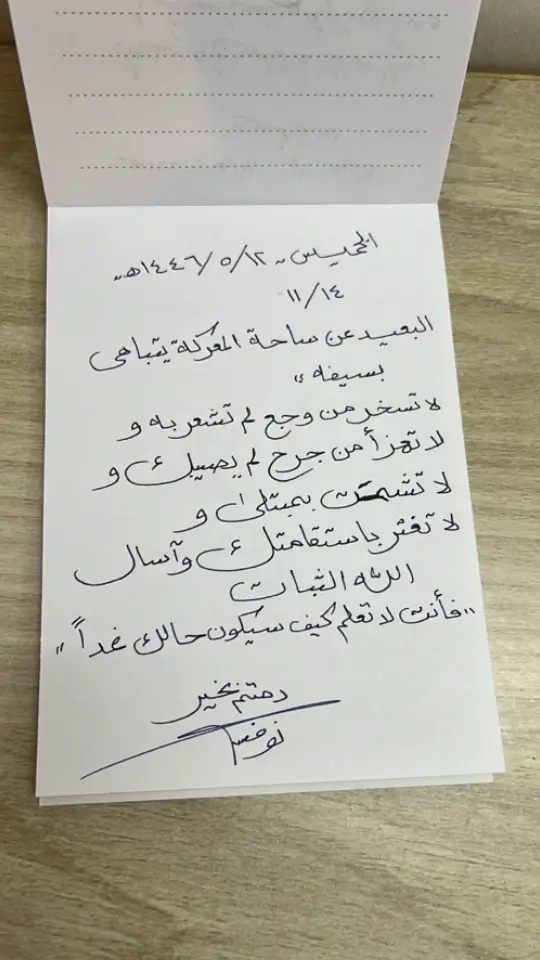 الخميس ١٤٤٦/٥/١٢هـ
١١/١٤
البعيد عن ساحة المعركة يتباهى
بسيفه ،،
لا تسخر من وجع لم تشعر به و
لا تهزأ من جرح لم يصيبك و
لا تشمت بمبتلى و
لا تغتر باستقامتك وآسال
الله الثبات
،،فأنت لا تعلم كيف سيكون حالك غداً،،
دمتم بخير